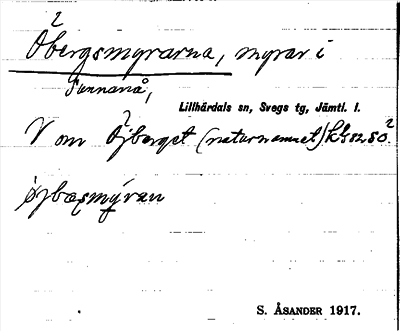 2
Öbergsmyrarna, myrar i
Sunnanå,
Lillhärdals sn, Svegs tg, Jämtl. l.
V om Öjberget (naturnamnet) kbl 82 SO.2
öjbæsmýran
S. ÅSANDER 1917.